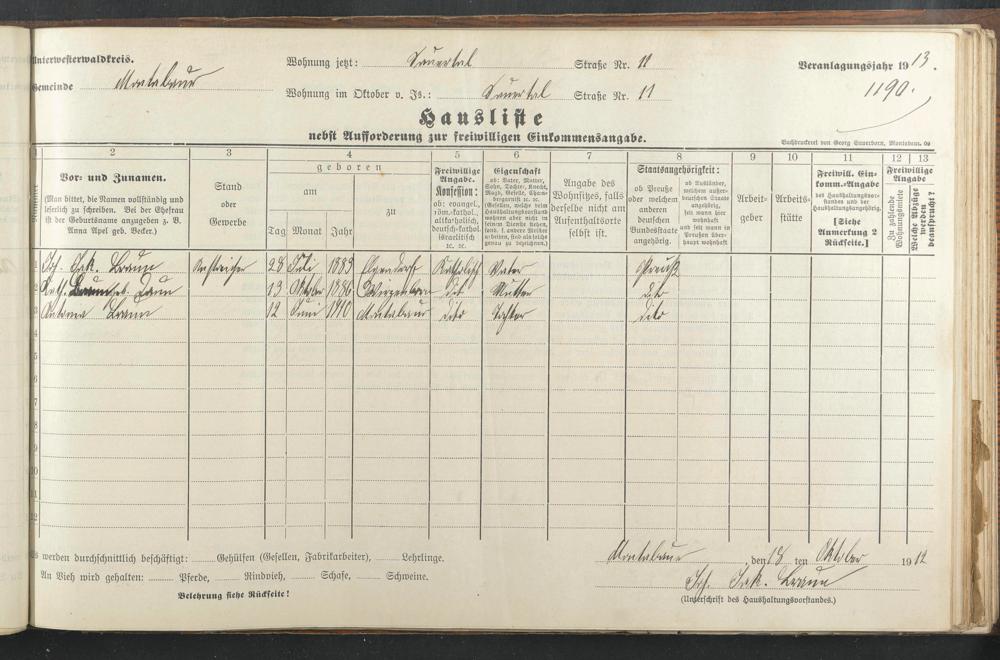 Unterwesterwaldkreis.
Wohnung jetzt: Sauertal Straße Nr. 11
Veranlagungsjahr 1913.
Gemeinde Montabaur
Wohnung im Oktober v. Js.: Sauertal Straße Nr. 11
1190.
Hausliste
nebst Aufforderung zur freiwilligen Einkommensangabe.
Buchdruckerei von Georg Sauerborn, Montabaur.
1 2 3 4 5 6 7 8 9 10 11 12 13
Vor- und Zunamen.
(Man bittet, die Namen vollständig und
leserlich zu schreiben. Bei der Ehefrau
ist der Geburtsname anzugeben z. B.
Anna Apel geb. Becker.)
Stand
oder
Gewerbe
geboren
am
zu
Tag Monat Jahr
Freiwillige
Angabe.
Konfession:
ob: evangel.,
röm.-kathol.,
altkatholisch,
deutsch-kathol.
israelitisch
ec. ec.
Eigenschaft
ob: Vater, Mutter,
Sohn, Tochter, Knecht,
Magd, Geselle, Cham-
bergarnist ec. ec.
Angabe des
Wohnsitzes, falls
derselbe nicht am
Aufenthaltsorte
selbst ist.
Staatsangehörigkeit:
ob Preuße
oder welchem
anderen
deutschen
Bundesstaate
angehörig.
ob Ausländer,
welchem außer-
deutschen Staate
angehörig,
seit wann hier
wohnhaft
und seit wann in
Preußen über-
haupt wohnhaft
Arbeit-
geber
Arbeits-
stätte
Freiwill. Ein-
komm.-Angabe
des Haushaltungsvor-
standes und der
Haushaltungsangehörig.
[Siehe
Anmerkung 2
Rückseite.]
Freiwillige
Angabe
Zu zahlende
Wohnungsmiete
Welche Abzüge
werden
beansprucht?
1 Joh. Jak. Braun Anstreicher 28 Juli 1883 Elgendorf Katholisch Vater Preuß
2 Kath. Braun geb. 13 Oktober 1886 dito Mutter dito
3 Braun 12 Juni 1910 Montabaur dito Tochter dito
4
5
6
7
8
9
10
11
12
Es werden durchschnittlich beschäftigt: Gehülfen (Gesellen, Fabrikarbeiter), Lehrlinge.
Montabaur, den 18 ten Oktober 1912
An Vieh wird gehalten: Pferde, Rindvieh, Schafe, Schweine.
Joh. Jak. Braun
Belehrung siehe Rückseite!
(Unterschrift des Haushaltungsvorstandes.)